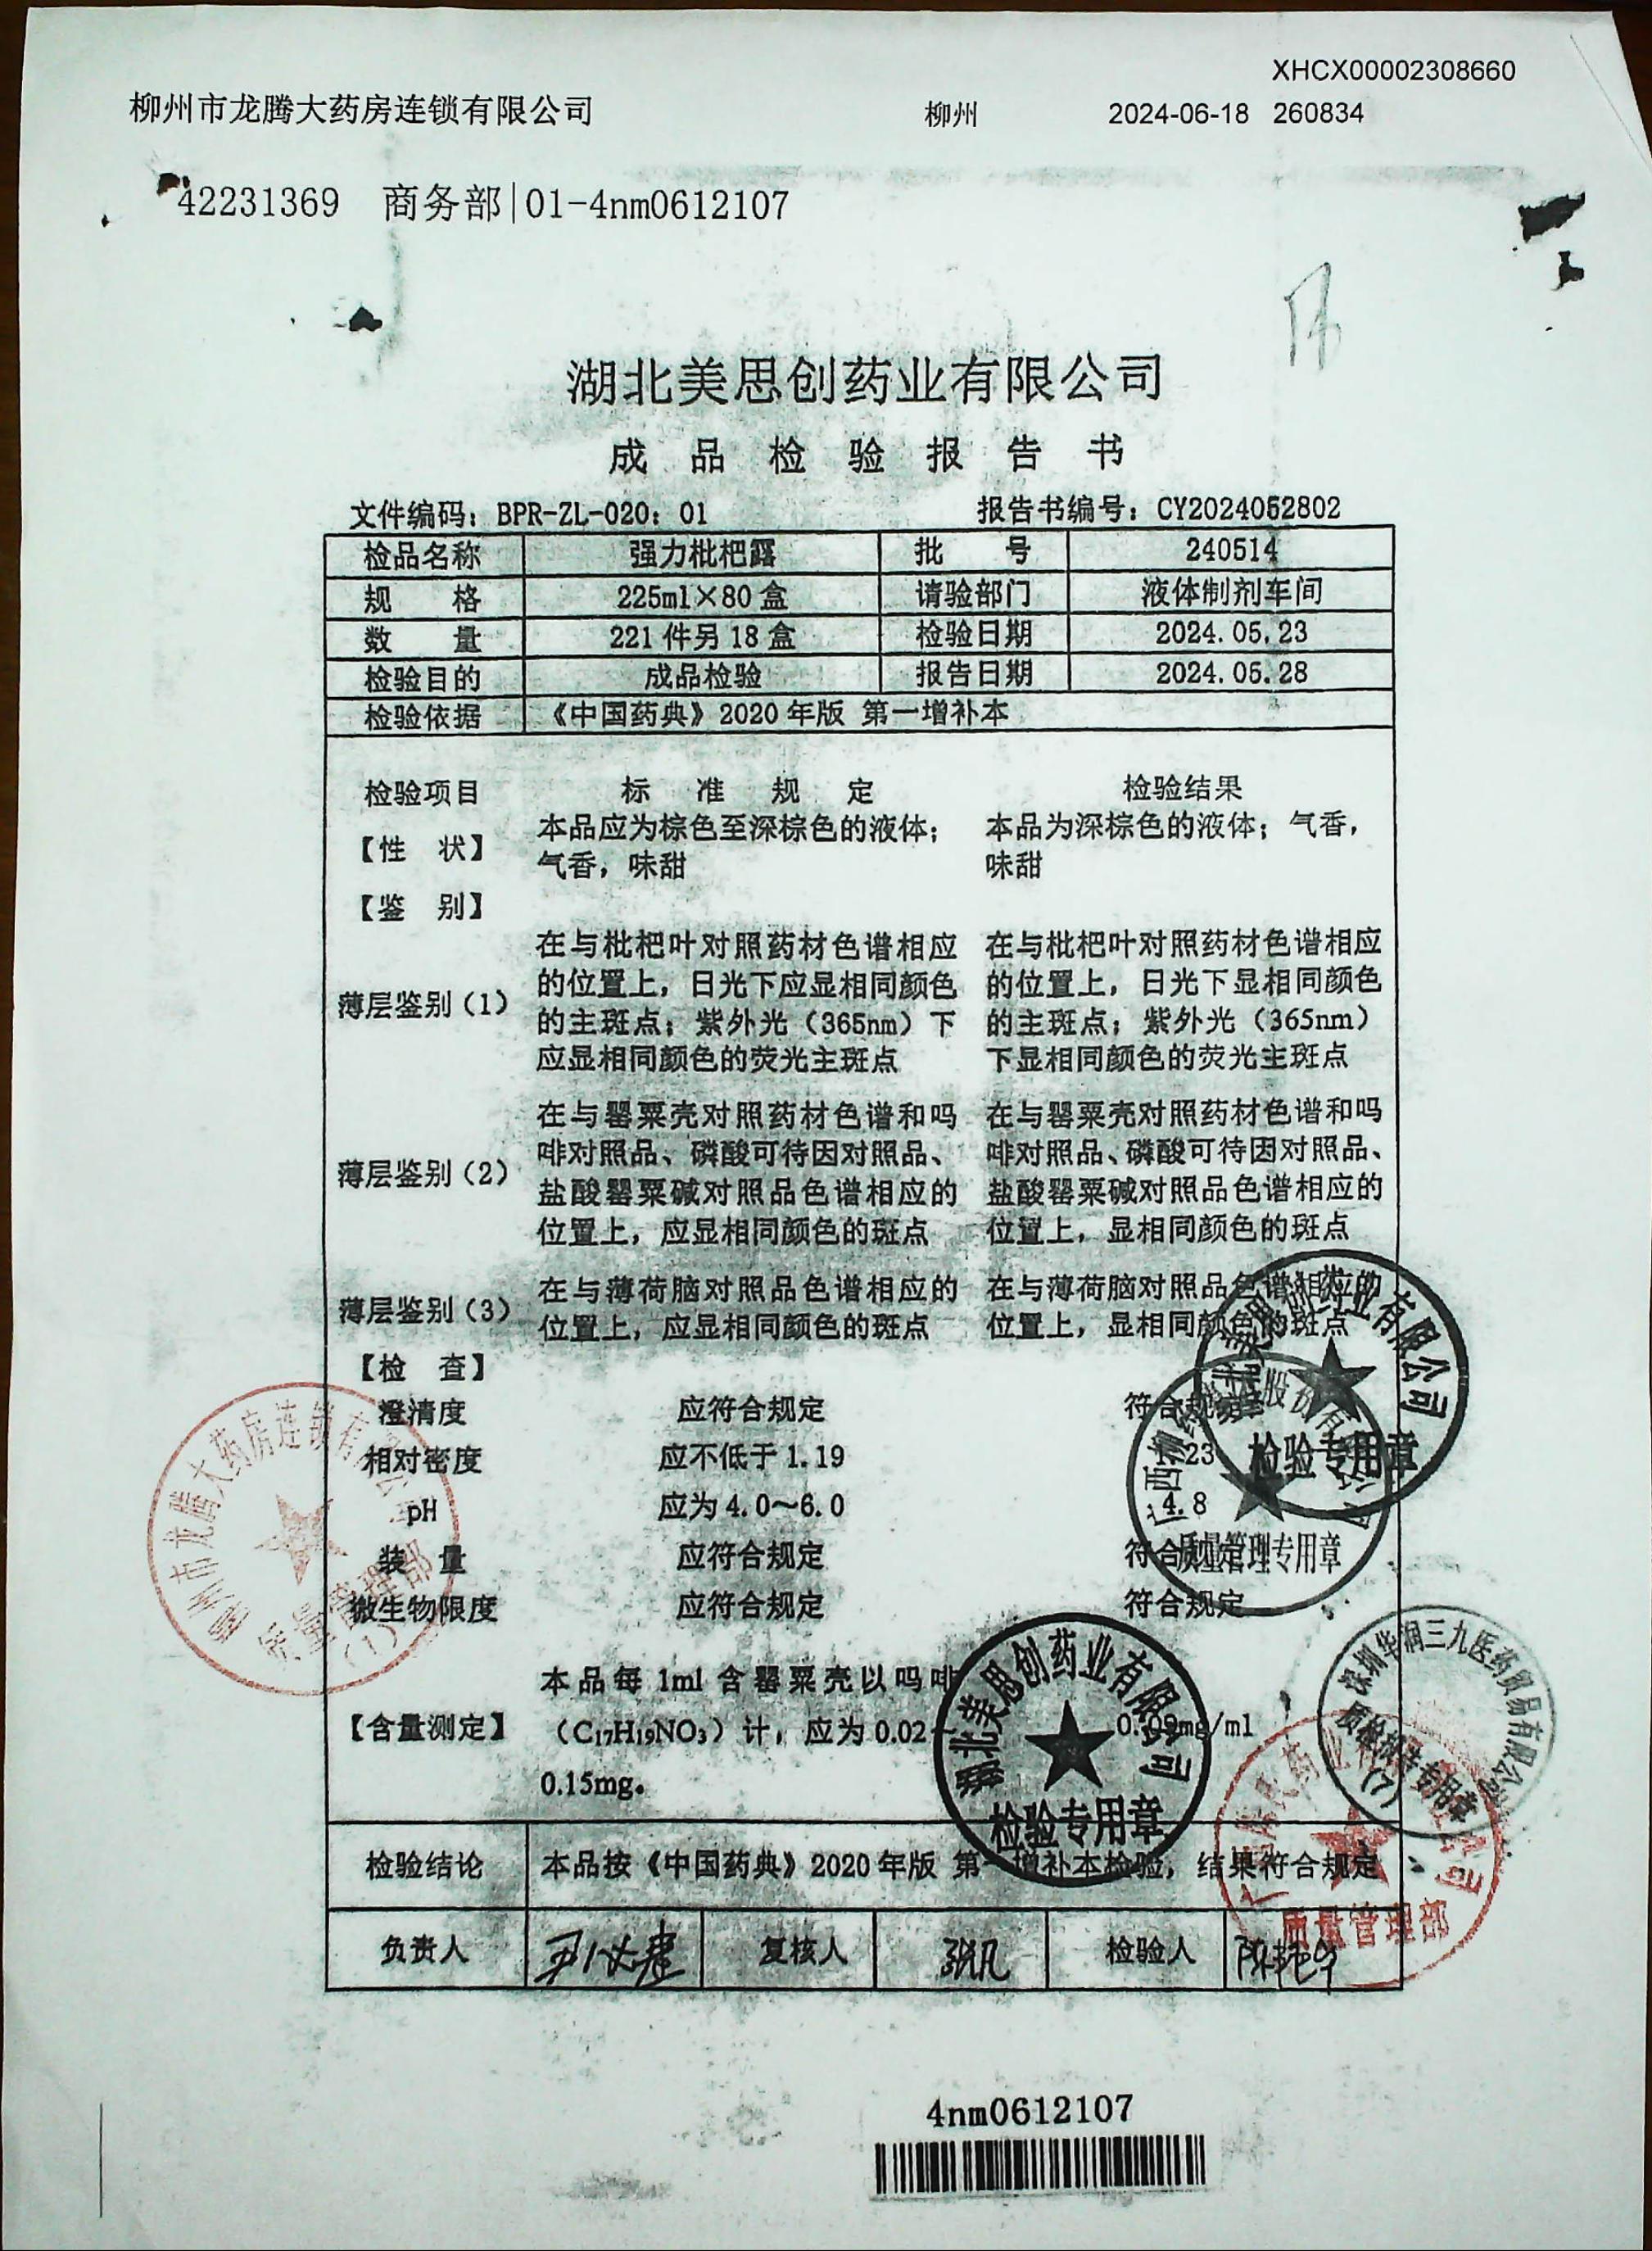 XHCX00002308660
柳州市龙腾大药房连锁有限公司 柳州 2024-06-18 260834
42231369 商务部|01-4nm0612107
湖北美思创药业有限公司
成品检验报告书
文件编码：BPR-ZL-020：01 报告书编号：CY2024052802
检品名称 强力枇杷露 批号 240514
规格 225ml×80盒 请验部门 液体制剂车间
数量 221件另18盒 检验日期 2024.05.23
检验目的 成品检验 报告日期 2024.05.28
检验依据 《中国药典》2020年版 第一增补本
检验项目 标准规定 检验结果
【性 状】 本品应为棕色至深棕色的液体； 本品为深棕色的液体；气香，
气香，味甜 味甜
【鉴 别】
薄层鉴别（1） 在与枇杷叶对照药材色谱相应 在与枇杷叶对照药材色谱相应
的位置上，日光下应显相同颜色 的位置上，日光下显相同颜色
的主斑点；紫外光（365nm）下 的主斑点；紫外光（365nm）
应显相同颜色的荧光主斑点 下显相同颜色的荧光主斑点
薄层鉴别（2） 在与罂粟壳对照药材色谱和吗 在与罂粟壳对照药材色谱和吗
啡对照品、磷酸可待因对照品、 啡对照品、磷酸可待因对照品、
盐酸罂粟碱对照品色谱相应的 盐酸罂粟碱对照品色谱相应的
位置上，应显相同颜色的斑点 位置上，显相同颜色的斑点
薄层鉴别（3） 在与薄荷脑对照品色谱相应的 在与薄荷脑对照品色谱相应的
位置上，应显相同颜色的斑点 位置上，显相同颜色的斑点
【检 查】
澄清度 应符合规定 符合规定
相对密度 应不低于1.19 1.23
pH 应为4.0～6.0 4.8
装量 应符合规定 符合规定
微生物限度 应符合规定 符合规定
本品每1ml含罂粟壳以吗啡
【含量测定】 （C17H19NO3）计，应为0.02 0.09mg/ml
0.15mg。
检验结论 本品按《中国药典》2020年版 第一增补本检验，结果符合规定
负责人 复核人 张凡 检验人
湖北美思创药业有限公司
检验专用章
质量管理专用章
湖北美思创药业有限公司
检验专用章
柳州市龙腾大药房连锁有限公司
质量管理部
（1）
深圳华润三九医药贸易有限公司
质检报告专用章
（7）
质量管理部
4nm0612107